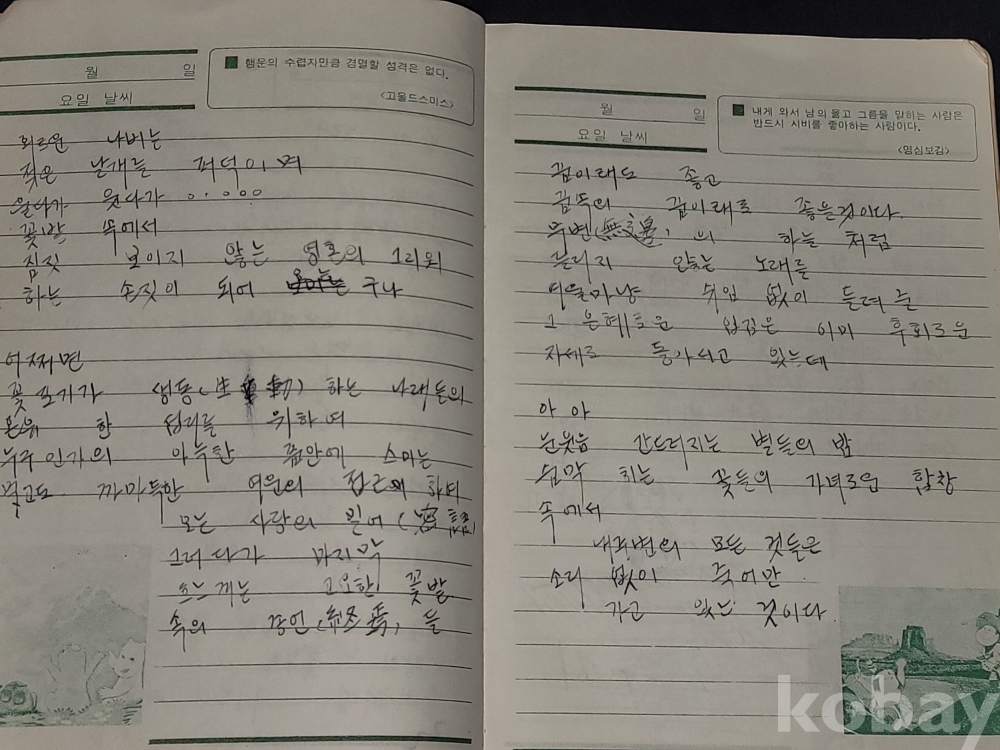 월 일
요일 날씨
행운의 수렵자만큼 경멸할 성격은 없다.
〈고울드스미스〉
외로운 나비는
젖은 날개를 퍼덕이며
웃다가
꽃밭 속에서
짐짓 보이지 않는 영혼의 그리워
하는 손짓이 되어 구나
어쩌면
꽃포기가 생동(生動)하는 나래들의
한 섭리를 위하여
누구인가의 아늑한 품안에 스미는
멀고도 까마득한 여원의 접근에 하며
모든 사랑의 밀어(密語)
그러다가 마지막
흐느끼는 고요한 꽃밭
속의 경언 들
월 일
요일 날씨
내게 와서 남의 옳고 그름을 말하는 사람은
반드시 시비를 좋아하는 사람이다.
〈명심보감〉
꿈이래도 좋고
꿈속의 꿈이래도 좋은것이다
무변(無邊)의 하늘 처럼
들리지 않는 노래를
여울마냥 쉬임 없이 들려 준
그 은혜로운 입김은 이미 후회로운
자세로 돌아서고 있는데
아 아
눈웃음 간드러지는 별들의 밤
치는 꽃들의 가녀로운 합창
속에서
내주변의 모든 것들은
소리 없이 죽어만
가고 있는 것이다
kobay